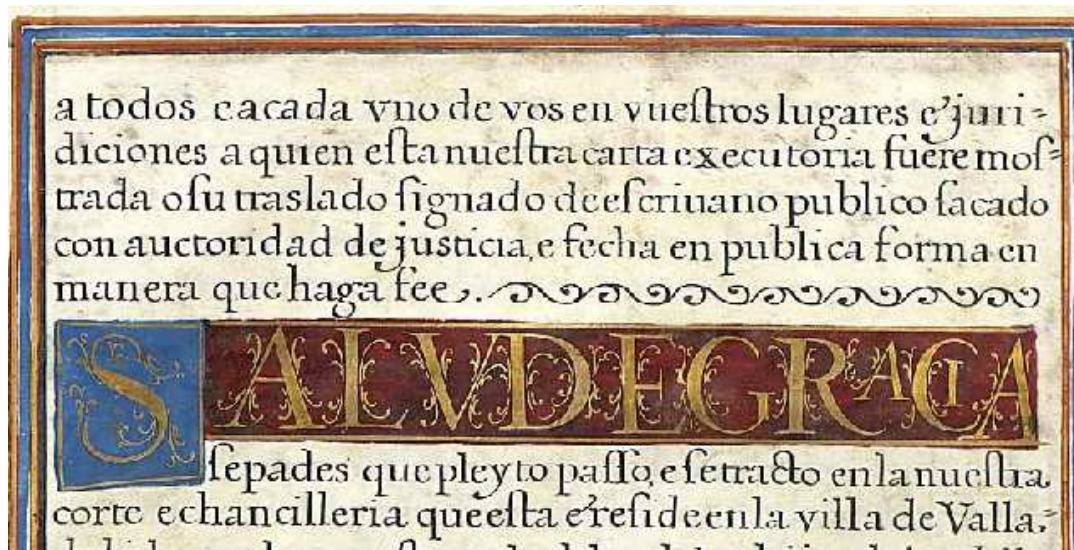 a todos e a cada vno de vos en vueſtros lugares e juri-
diciones a quien eſta nueſtra carta executoria fuere moſ-
trada o ſu traslado ſignado de eſcriuano publico ſacado
con auctoridad de justicia, e fecha en publica forma en
manera que haga fee.
SALVD E GRACIA
ſepades que pleyto paſſo, e ſe tracto en la nueſtra
corte e chancilleria que eſta e reſide en la villa de Valla-